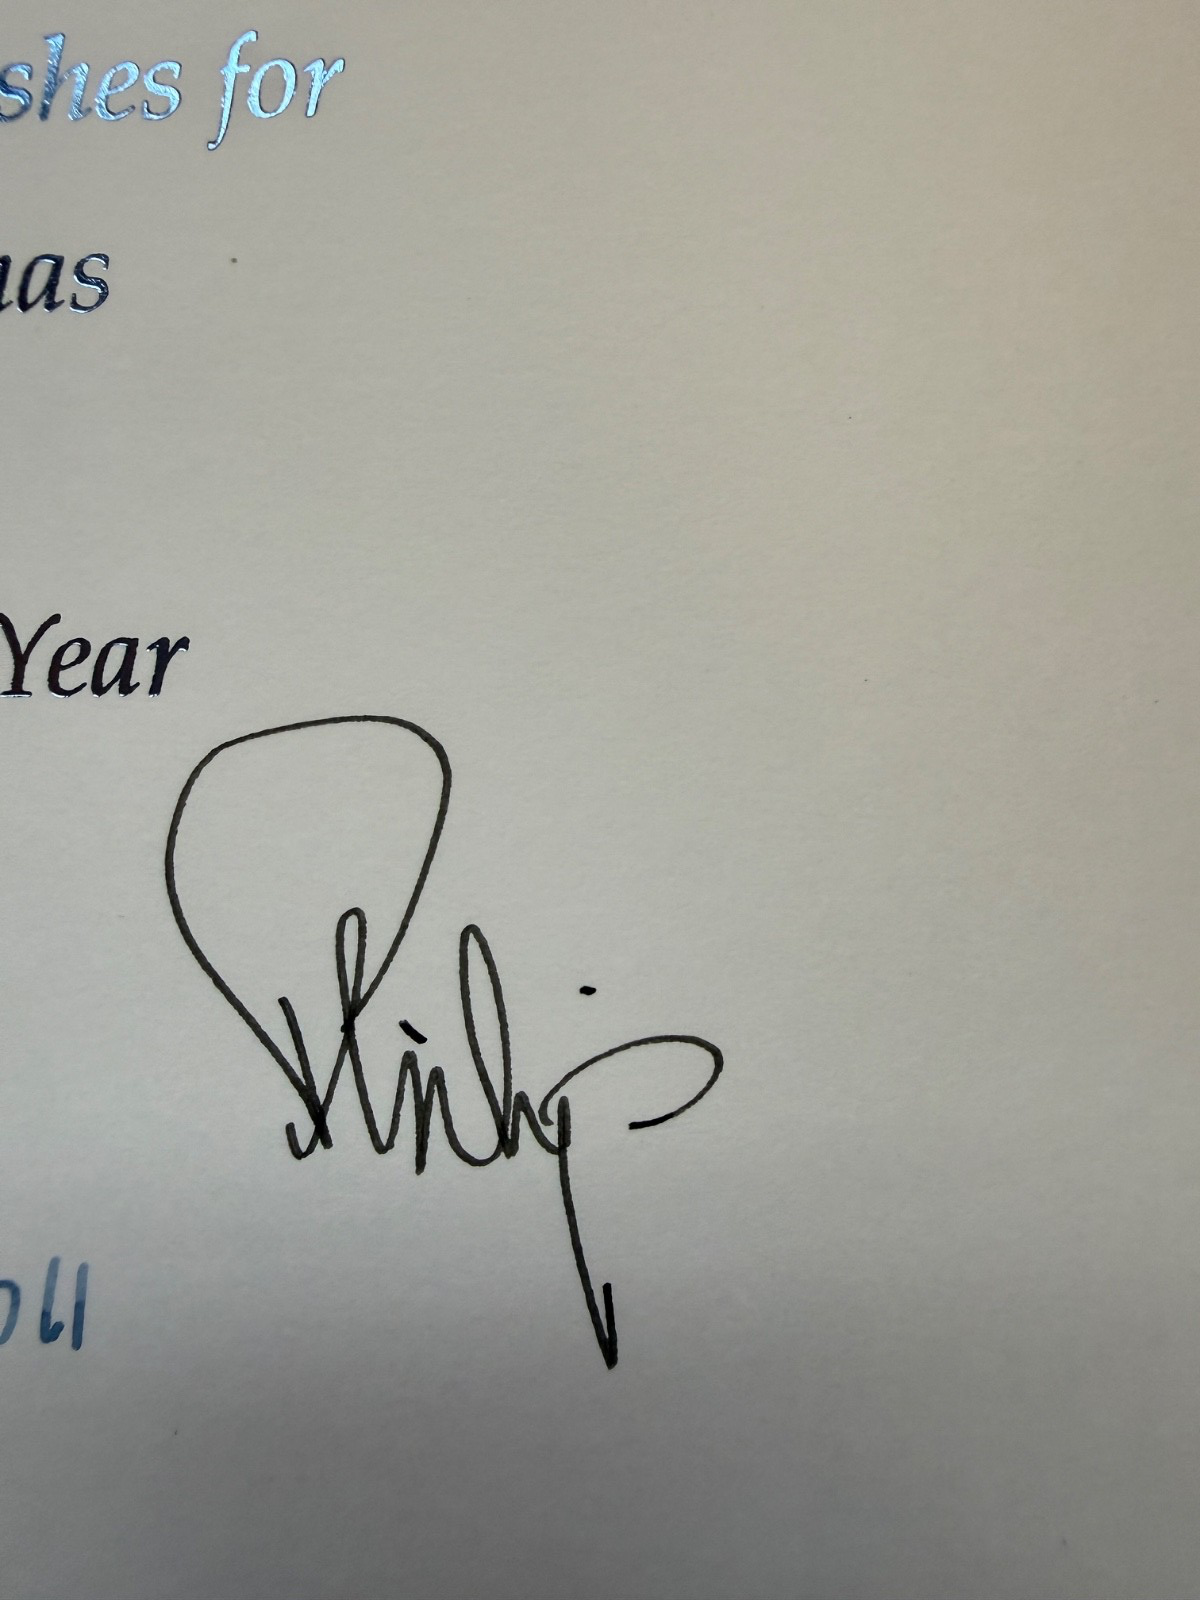 shes for
as
Year
Philip
011